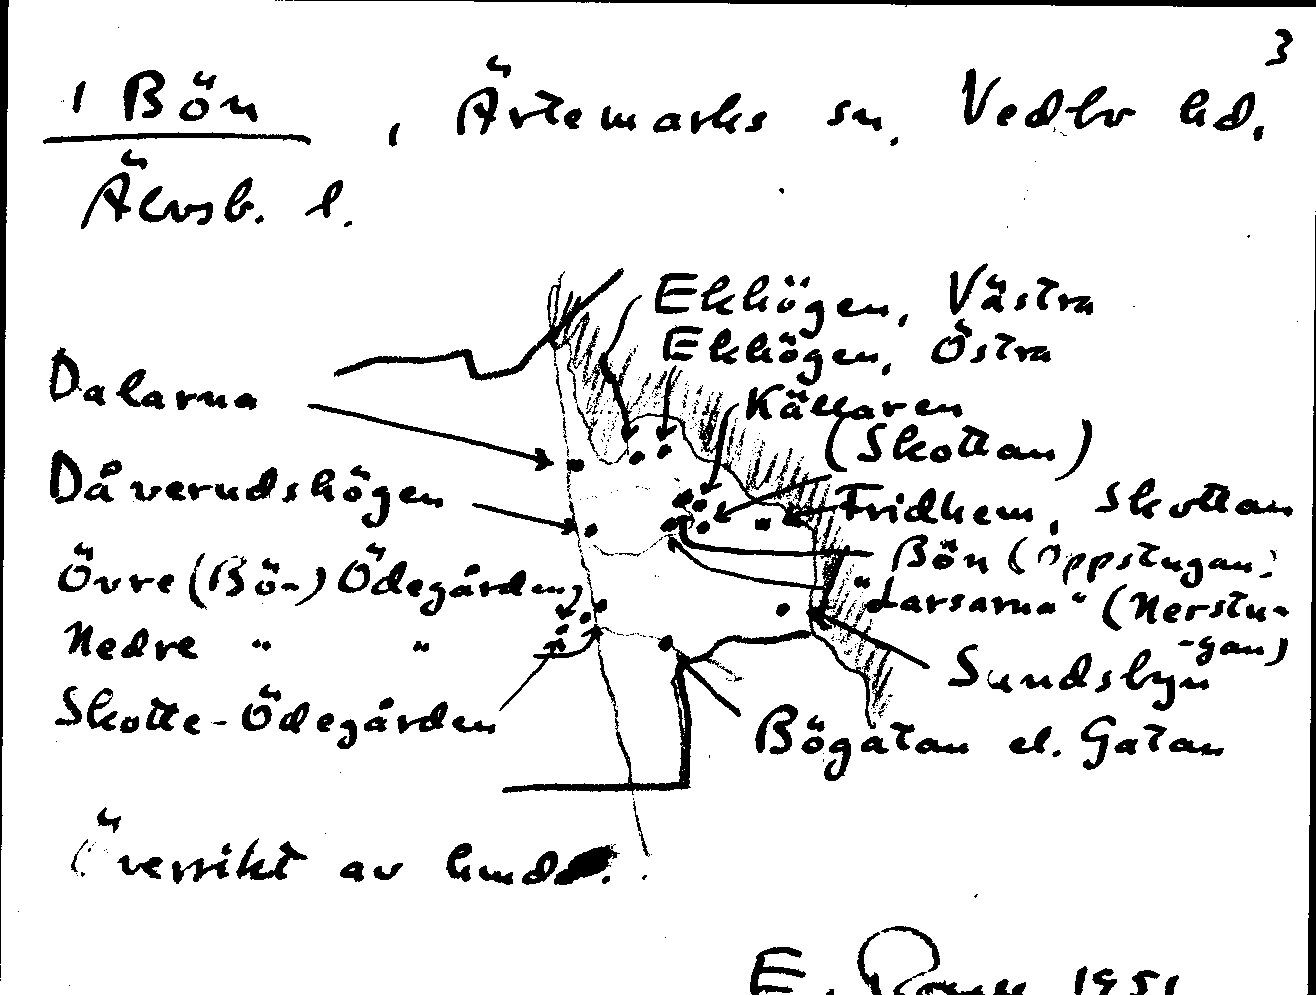 3
1 Bön, Ärtemarks sn. Vedbo hd.
Älvsb. l.
Ekhögen, Västra
Ekhögen, Östra
Dalarna
Källaren
(Skottan)
Dåverudshögen
Fridhem, Skottan
Bön (Oppstugan)
Övre (Bö-) Ödegården,
"Larsarna" (Nerstu-
-gan)
Nedre " "
Sundsbyn
Skotte-Ödegården
Bögatan el. Gatan
Översikt av
E. 1951